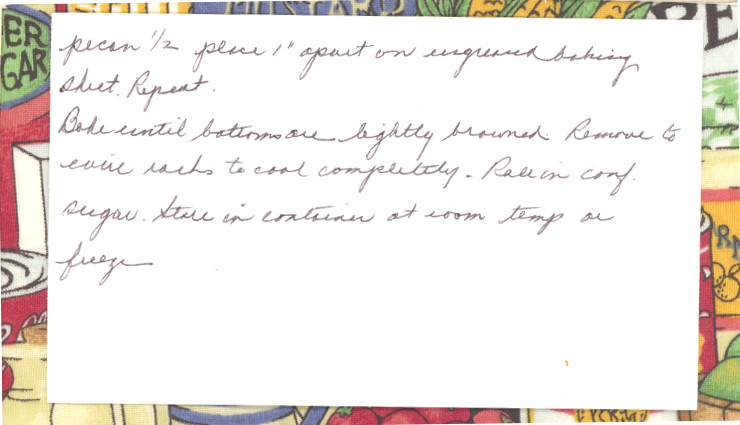 pecan 1/2 place 1" apart on ungreased baking
sheet. Repeat.
Bake until bottoms are lightly browned. Remove to
wire racks to cool completely. Roll in conf.
sugar. Store in container at room temp or
freeze
ER
GAR